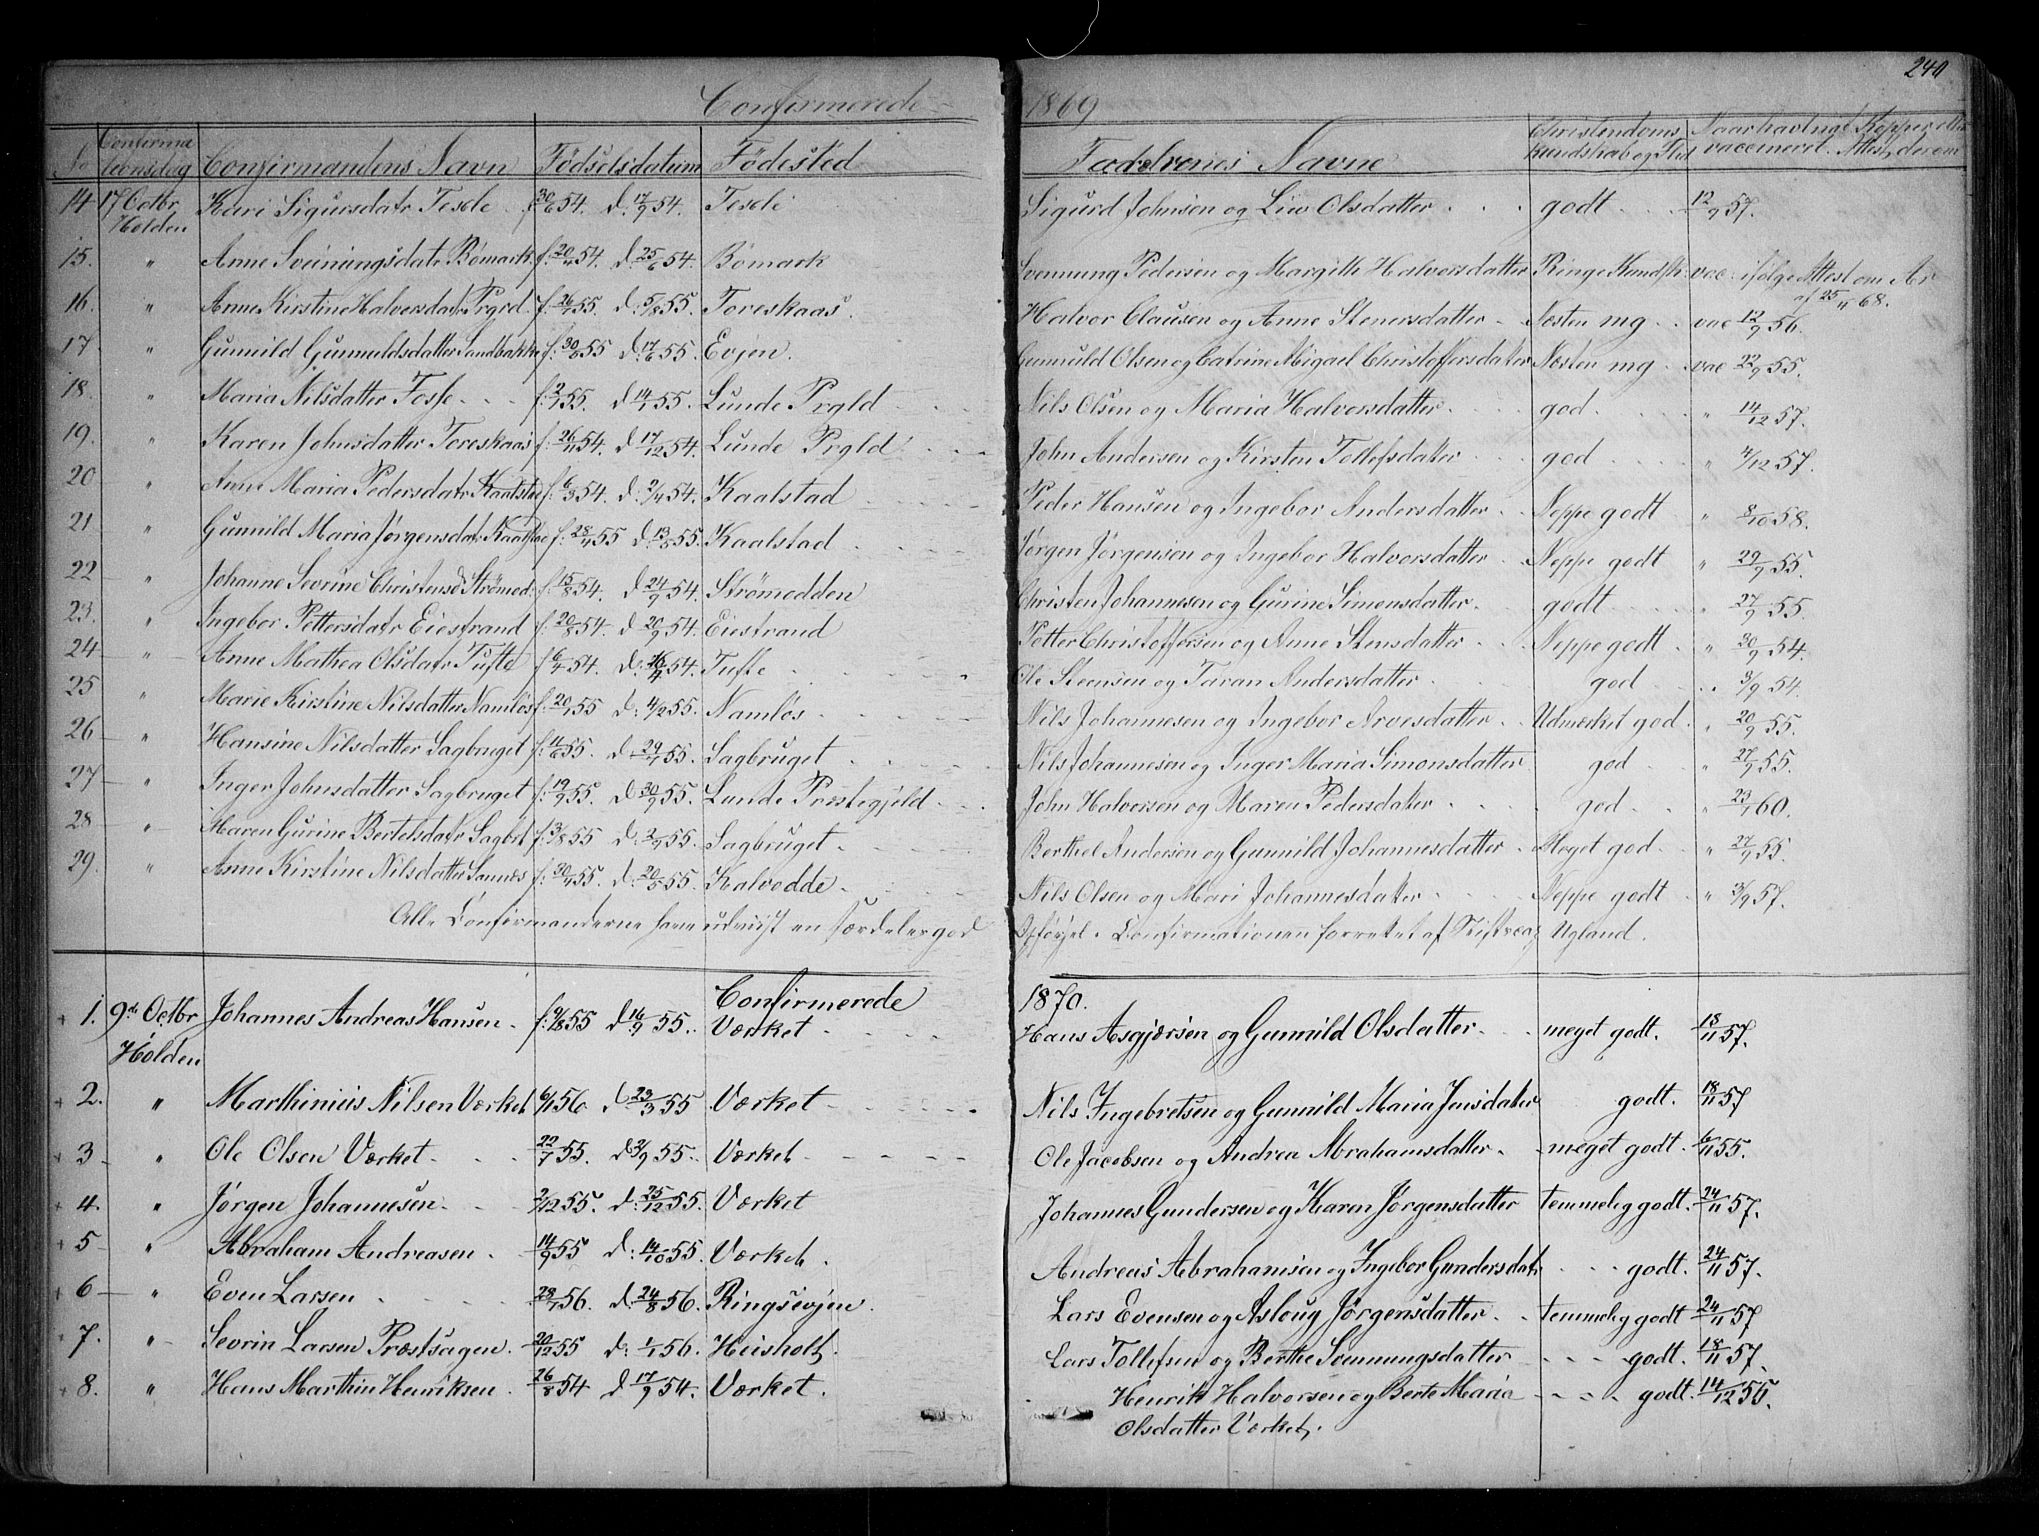 240
Confirmerede 1869
No Confirmationsdag Confirmandens Navn Fødselsdatum Fødested Forældrenes Navne Christendoms kundskab og Flid Naar havt nat. Kopper eller vaccineret. Attest derom
14 17 Octbr Holden Kari Sigursdatr Tesde f. 30/6 54. d. 17/9 54. Tesde Sigurd Johnsen og Liv Olsdatter godt 12/9 57.
15. " Anne Sveinungsdatr Bømark f. 20/4 54. d. 25/6 54. Bømark Svennung Pedersen og Margith Halvorsdatter Ringe Kundsk. vac. ifølge Attest om Ar af 25/11 68.
16. " Anne Kirstine Halversdatr Prgrd. f. 26/4 55 d. 5/8 55. Toreskaas. Halvor Clausen og Anne Stenersdatter Næsten mg vac 12/9 56.
17 " Gunnild Gunnuldsdatter Sandbakke f. 30/5 55 d. 17/6 55. Evjen. Gunnuld Olsen og Catrine Abigael Christoffersdatter Næsten mg vac 22/9 55.
18. " Maria Nilsdatter Fosse f. 2/1 55. d. 14/1 55. Lunde Prgld Nils Olsen og Maria Halvorsdatter god " 14/12 57.
19. " Karen Johnsdatter Toreskaas f. 26/11 54. d. 17/12 54. Lunde Prgld John Andersen og Kirsten Tollefsdatter god " 4/12 57.
20 " Anne Maria Pedersdatr Kaalstad f. 6/3 54. d. 2/4 54. Kaalstad Peder Hansen og Ingebor Andersdatter Neppe godt " 8/10 58.
21 " Gunnild Maria Jørgensdatr Kaalstad f. 28/4 55 d. 13/5 55. Kaalstad Jørgen Jørgensen og Ingebor Halvorsdatter Neppe godt " 29/9 55.
22 " Johanne Sevrine Christensd Strømod. f. 15/8 54. d. 24/9 54. Strømodden Christen Johannesen og Gurine Simensdatter godt " 27/9 55.
23. " Ingebor Pettersdatr Eiestrand f. 20/8 54. d. 20/9 54. Eiestrand Petter Christoffersen og Anne Stensdatter Neppe godt " 30/9 54.
24 " Anne Mathea Olsdatr Tufte f. 6/4 54. d. 16/4 54. Tufte Ole Steensen og Taran Andersdatter god 3/9 54.
25 " Marie Kirstine Nilsdatter Namløs f. 20/1 55 d. 4/2 55. Namløs Nils Johannesen og Ingebor Arvesdatter Udmærket god " 20/9 55.
26 " Hansine Nilsdatter Sagbruget f. 11/6 55. d. 29/7 55. Sagbruget Nils Johannesen og Inger Maria Simonsdatter god " 27/9 55.
27 " Inger Johnsdatter Sagbruget f. 19/9 55. d. 30/9 55. Lunde Præstegjeld John Halvorsen og Maren Pedersdatter god " 23/1 60.
28 " Maren Gurine Bertelsdatr Sagbrt f. 3/8 55 d. 2/9 55. Sagbruget Berthel Andersen og Gunnild Johannesdatter Meget god " 27/9 55.
29. " Anne Kirstine Nilsdatter Sannes f. 30/4 55. d. 20/5 55. Kalvodde Nils Olsen og Mari Johannesdatter Neppe godt " 3/9 57.
Alle Confirmanderne have udviist en særdeler god Opførsel. Confirmationen forrettet af Stiftscap Ugland.
Confirmerede 1870.
1. 9de Octbr Holden Johannes Andreas Hansen f. 9/8 55 d. 16/9 55. Værket Hans Asgjersen og Gunnild Olsdatter meget godt. 18/11 57.
2. " Marthinius Nilsen Værket 6/1 56 d. 23/3 55 Værket Nils Ingebretsen og Gunnild Maria Jensdatter godt. 18/11 57
3 " Ole Olsen Værket 22/7 55. d. 2/9 55. Værket Ole Jacobsen og Andrea Abrahamsdatter meget godt. 6/11 55.
4. " Jørgen Johannesen 2/12 55. d. 25/12 55 Værket Johannes Gundersen og Karen Jørgensdatter temmelig godt. 24/11 57.
5 " Abraham Andreasen 14/9 55 d. 14/10 55. Værket Andreas Abrahamsen og Ingebor Gundersdatr godt. 24/11 57.
6 " Even Larsen 28/7 56. d. 24/8 56. Ringsevjen Lars Evensen og Asloug Jørgensdatter temmelig godt 24/11 57
7. " Sevrin Larsen Præstsagen 20/12 55 d. 1/1 56. Heisholt. Lars Tollefsen og Berthe Svennungsdatter godt. 18/11 57.
8. " Hans Marthin Henriksen 26/8 54 d. 17/9 54. Værket. Henrik Halvorsen og Berte Maria godt. 14/12 55.
Olsdatter Værket.